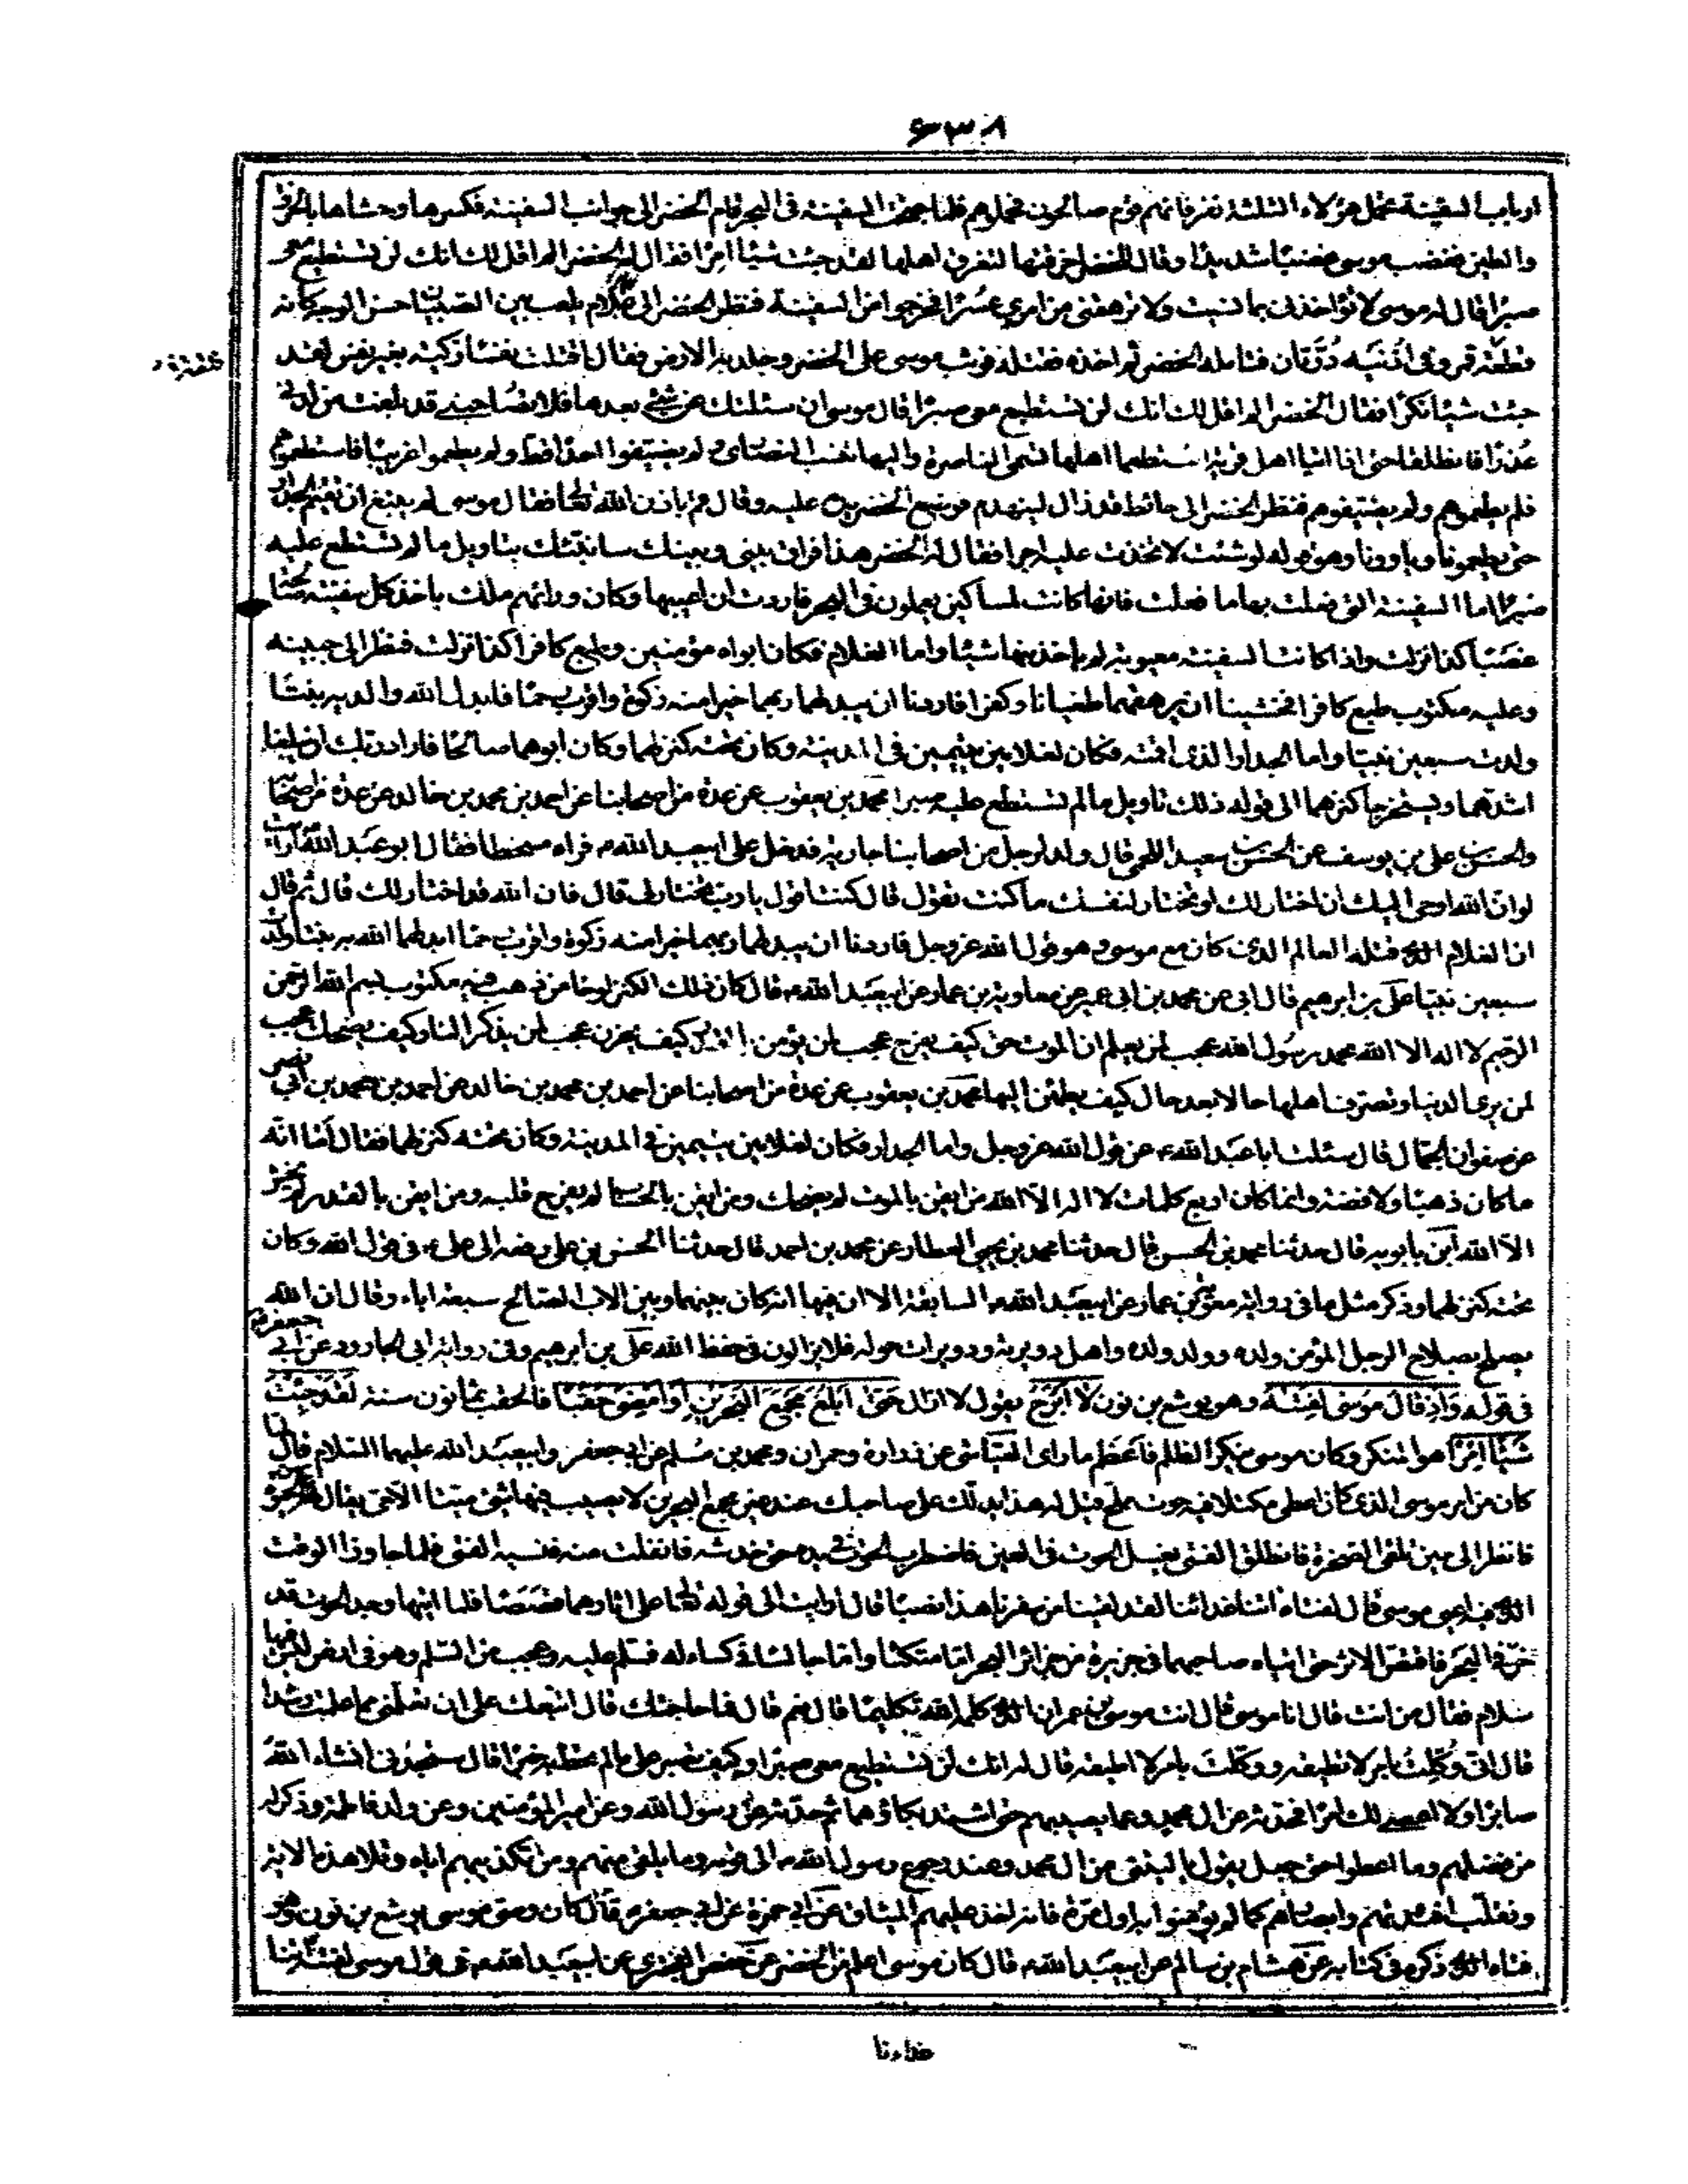 ۶۳۸
ارباب السفينة نحمل هؤلاء الثلثة نفر فانهم قوم صالحون فحملوهم فلما جنحت السفينة فى البحر قام الخضر الى جوانب السفينة فكسرها وحشاها بالخرق
والطين فغضب موسى غضبا شديدا وقال للخضر اخرقتها لتغرق اهلها لقد جئت شيئا امرا فقال له الخضر الم اقل لك انك لن تستطيع معى
صبرا قال له موسى لا تؤاخذنى بما نسيت ولا ترهقنى من امرى عسرا فخرجوا من السفينة فنظر الخضر الى غلام يلعب بين الصبيان حسن الوجه كانه
قطعة قمر وفى اذنيه درتان فتامله الخضر ثم اخذه فقتله فوثب موسى على الخضر وجلد به الارض فقال اقتلت نفسا زكية بغير نفس لقد
جئت شيئا نكرا فقال الخضر الم اقل لك انك لن تستطيع معى صبرا قال موسى ان سئلتك عن شئ بعدها فلا تصاحبنى قد بلغت من لدنى
عذرا فانطلقا حتى اذا اتيا اهل قرية استطعما اهلها تسمى الناصرة واليها تنسب النصارى ولم يضيفوا احدا قط ولم يطعموا غريبا فاستطعموهم
فلم يطعموهم ولم يضيفوهم فنظر الخضر الى حائط قد زال لينهدم فوضع الخضر يده عليه وقال قم باذن الله تعالى فقام فقال موسى لم ينبغ ان تقيم الجدار
حتى يطعمونا وياوونا وهو قوله لو شئت لاتخذت عليه اجرا فقال له الخضر هذا فراق بينى وبينك سانبئك بتاويل ما لم تستطع عليه
صبرا اما السفينة التى فعلت بها ما فعلت فانها كانت لمساكين يعملون فى البحر فاردت ان اعيبها وكان ورائهم ملك ياخذ كل سفينة صالحة
غصبا كذا نزلت واذا كانت السفينة معيوبة لم ياخذ منها شيئا واما الغلام فكان ابواه مؤمنين وطبع كافرا كذا نزلت فنظر الى جبينه
وعليه مكتوب طبع كافرا فخشينا ان يرهقهما طغيانا وكفرا فاردنا ان يبدلهما ربهما خيرا منه زكوة واقرب رحما فابدل الله والديه بنتا
ولدت سبعين نبيا واما الجدار الذى اقمته فكان لغلامين يتيمين فى المدينة وكان تحته كنز لهما وكان ابوهما صالحا فاراد ربك ان يبلغا
اشدهما ويستخرجا كنزهما الى قوله ذلك تاويل ما لم تستطع عليه صبرا محمد بن يعقوب عن عدة من اصحابنا عن احمد بن محمد بن خالد عن عدة من اصحابنا
عن الحسن بن على بن يوسف عن الحسن بن سعيد اللخمى قال ولد لرجل من اصحابنا جارية فدخل على ابيعبد الله ع فراه متسخطا فقال ابو عبد الله ع ارايت
لو ان الله اوحى اليك ان اختار لك او تختار لنفسك ما كنت تقول قال كنت اقول يا رب تختار لى قال فان الله قد اختار لك قال ثم قال
ان الغلام الذى قتله العالم الذى كان مع موسى وهو قول الله عز وجل فاردنا ان يبدلهما ربهما خيرا منه زكوة واقرب رحما ابدلهما الله به بنتا ولدت
سبعين نبيا على بن ابرهيم قال ابى عن محمد بن ابى عمير عن معاوية بن عمار عن ابيعبد الله ع قال كان ذلك الكنز لوحا من ذهب فيه مكتوب بسم الله الرحمن
الرحيم لا اله الا الله محمد رسول الله عجب لمن يعلم ان الموت حق كيف يفرح عجب لمن يؤمن بالقدر كيف يحزن عجب لمن يذكر النار كيف يضحك عجب
لمن يرى الدنيا وتصرف اهلها حالا بعد حال كيف يطمئن اليها محمد بن يعقوب عن عدة من اصحابنا عن احمد بن محمد بن خالد عن احمد بن محمد بن ابى نصر
عن صفوان الجمال قال سئلت ابا عبد الله ع عن قول الله عز وجل واما الجدار فكان لغلامين يتيمين فى المدينة وكان تحته كنز لهما فقال اما انه
ما كان ذهبا ولا فضة وانما كان اربع كلمات لا اله الا الله من ايقن بالموت لم يضحك ومن ايقن بالحساب لم يفرح قلبه ومن ايقن بالقدر لم يخش
الا الله ابن بابويه قال حدثنا محمد بن الحسن قال حدثنا محمد بن يحيى العطار عن محمد بن احمد قال حدثنا الحسن بن على رفعه الى على ع فى قول الله وكان
تحته كنز لهما وذكر مثل ما فى رواية معوية بن عمار عن ابيعبد الله ع السابقة الا ان فيها انه كان بينهما وبين الاب الصالح سبعة اباء وقال ان الله
يصلح بصلاح الرجل المؤمن ولده وولد ولده واهل دويرته ودويرات حوله فلا يزالون فى حفظ الله على بن ابرهيم وفى رواية ابى الجارود عن ابى جعفر ع
فى قوله واذ قال موسى لفتيه وهو يوشع بن نون لا ابرح يقول لا ازال حتى ابلغ مجمع البحرين او امضى حقبا قال الحقب ثمانون سنة لقد جئت
شيئا امرا هو المنكر وكان موسى ينكر الظلم فاعظم ما راى العياشى عن زرارة وحمران ومحمد بن مسلم عن ابى جعفر وابيعبد الله عليهما السلام قال
كان من امر موسى الذى كان اعطى مكتلا فيه حوت مملح قيل له هذا يدلك على صاحبك عند عين مجمع البحرين لا يصيب منها شئ ميتا الا حى يقال له عين الحيوة
فانطلقا حتى بلغا الصخرة فانطلق الفتى يغسل الحوت فى العين فاضطرب الحوت فى يده حتى خدشه فانفلت منه فنسيه الفتى فلما جاوزا الوقت
الذى اعيى موسى قال لفتاه اتنا غدائنا لقد لقينا من سفرنا هذا نصبا قال ارايت الى قوله تعالى على اثارهما قصصا فلما اتيها وجد الحوت قد
خر فى البحر فاقتصا الاثر حتى اتياه صاحبهما فى جزيرة من جزائر البحر اما متكئا واما جالسا فى كساء له فسلم عليه وعجب من السلم وهو فى ارض ليس فيها
سلام فقال من انت قال انا موسى قال انت موسى بن عمران الذى كلمه الله تكليما قال نعم قال فما حاجتك قال اتبعك على ان تعلمنى مما علمت رشدا
قال انى وكلت بامر لا تطيقه ووكلت بامر لا اطيقه قال له انك لن تستطيع معى صبرا وكيف تصبر على ما لم تحط به خبرا قال ستجدنى انشاء الله
صابرا ولا اعصى لك امرا فحدثه عن ال محمد وعما يصيبهم حتى اشتد بكاؤهما ثم حدثه عن رسول الله وعن امير المؤمنين وعن ولد فاطمة وذكر له
من فضلهم وما اعطوا حتى جعل يقول يا ليتنى من ال محمد وعند رجوع رسول الله ص الى قومه وما يلقى منهم ومن تكذيبهم اياه وتلا هذه الاية
ونقلب افئدتهم وابصارهم كما لم يؤمنوا به اول مرة فانه اخذ عليهم الميثاق عن ابى حمزة عن ابى جعفر ع قال كان وصى موسى يوشع بن نون وهو
فتاه الذى ذكره فى كتابه عن هشام بن سالم عن ابيعبد الله ع قال كان موسى اعلم من الخضر عن حفص البخترى عن ابيعبد الله ع فى قول موسى لفتيه اتنا
غداءنا